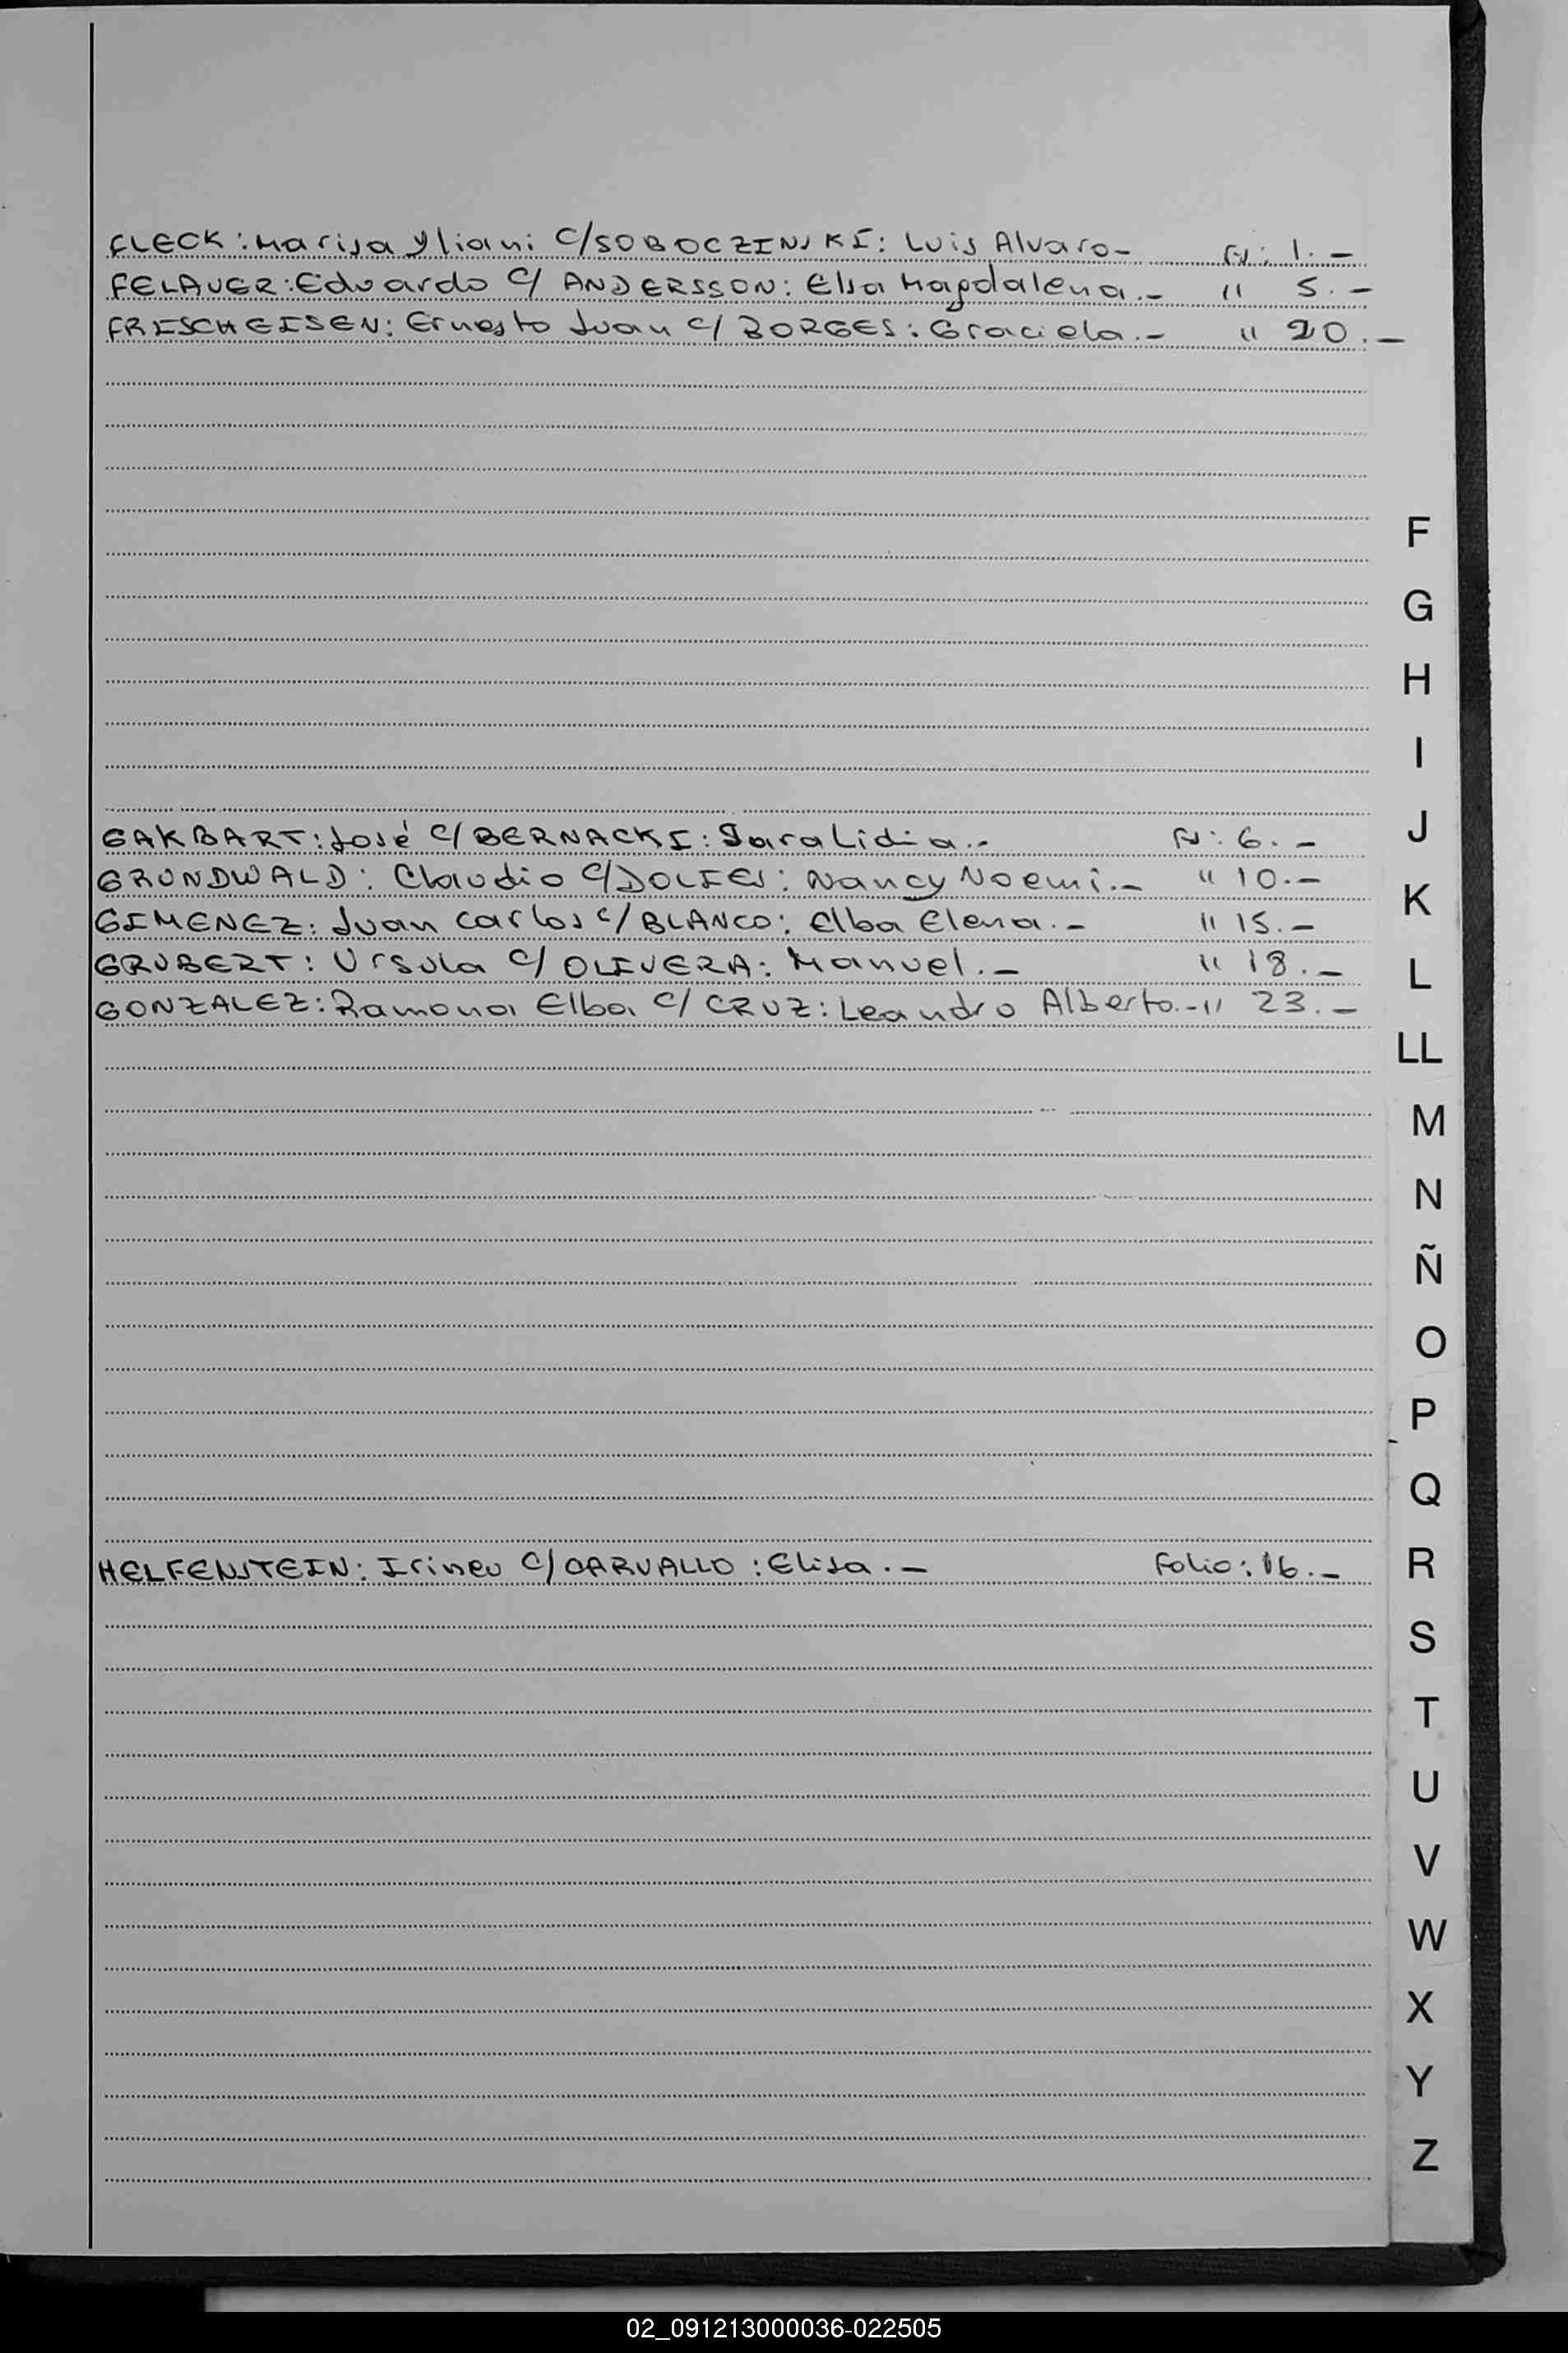 FLECK: Marisa Yliani C/SOBOCZINSKI: Luis Alvaro- Fº: 1.-
FELAUER: Eduardo C/ ANDERSSON: Elsa Magdalena.- " 5.-
FRISCHEISEN: Ernesto Juan C/ BORGES: Graciela.- " 20.-
F
G
H
I
J
GAKBART: José C/ BERNACKI: Sara Lidia.- Fº: 6.-
GRUNDWALD: Claudio C/DOLIES: Nancy Noemi.- " 10.-
K
GIMENEZ: Juan Carlos C/ BLANCO: Elba Elena.- " 15.-
GRUBERT: Ursula C/ OLIVERA: Manuel.- " 18.-
L
GONZALEZ: Ramona Elba C/ CRUZ: Leandro Alberto.- " 23.-
LL
M
N
Ñ
O
P
Q
HELFENSTEIN: Irineu C/CARVALLO: Elisa.- Folio: 16.-
R
S
T
U
V
W
X
Y
Z
02_091213000036-022505